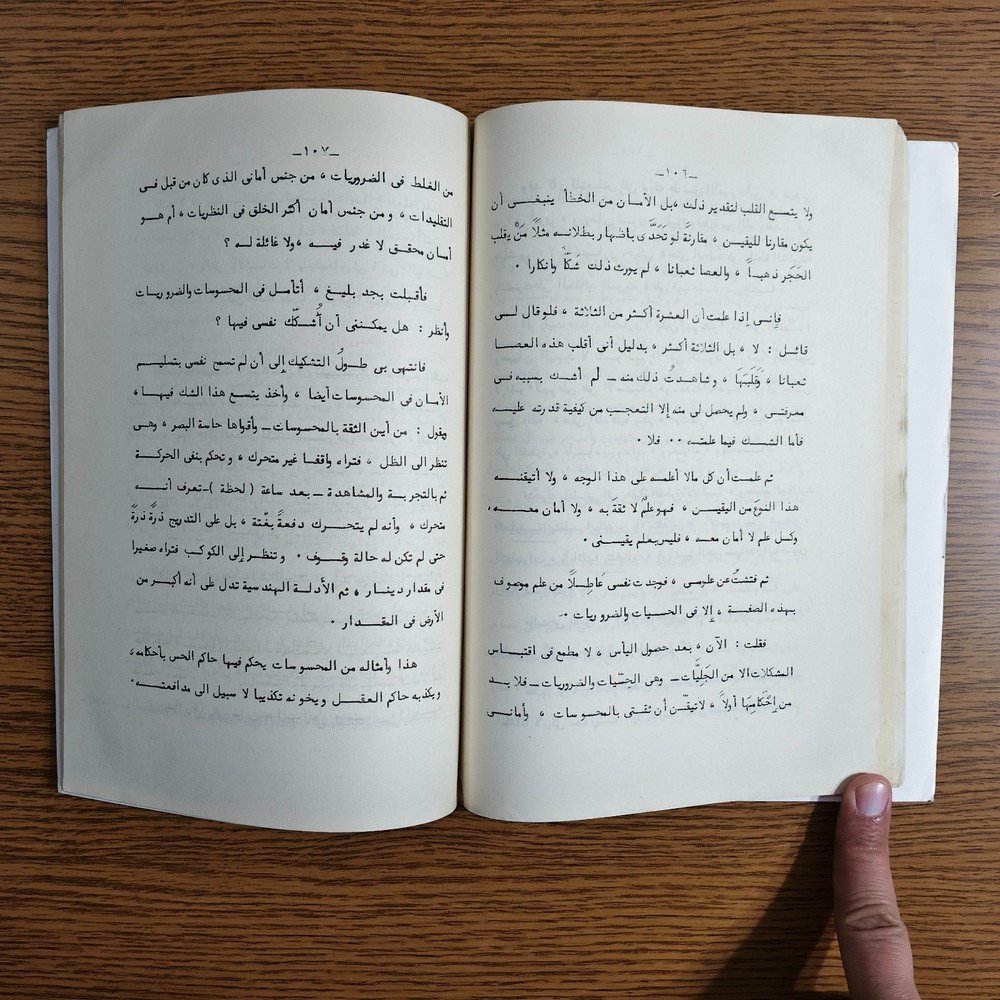 -١٠٦-
ولا يتسع القلب لتقدير ذلك ، بل الأمان من الخطأ ينبغى أن
يكون مقارنا لليقين ، مقارنةً لو تَحَدَّى باظهار بطلانه مثلاً مَنْ يقلب
الحَجَر ذهباً ، والعصا ثعبانا ، لم يورث ذلك شَكّاً وانكارا .
فإنى إذا علمت أن العشرة أكثر من الثلاثة ، فلو قال لى
قائل : لا ، بل الثلاثة أكثر ، بدليل أنى أقلب هذه العصا
ثعبانا ، وَقَلَبَهَا ، وشاهدتُ ذلك منه _ لم أشك بسببه فى
معرفتى ، ولم يحصل لى منه إلا التعجب من كيفية قدرته عليه
فأما الشك فيما علمته .. فلا .
ثم علمت أن كل مالا أعلمه على هذا الوجه ، ولا أتيقنه
هذا النوعَ من اليقين ، فهو علمٌ لا ثقةَ به ، ولا أمان معه ،
وكل علم لا أمان معه ، فليس بعلم يقينى .
ثم فتشتُ عن علومى ، فوجدت نفسى عَاطِلاً من علم موصوف
بهذه الصفة ، إلا فى الحسيات والضروريات .
فقلت : الآن ، بعد حصول اليأس ، لا مطمع فى اقتباس
المشكلات الا من الجَلِيَّات _ وهى الحِسّيات والضروريات _ فلا بد
من إِحْكَامِهَا أولاً ، لاتيقّن أن ثقتى بالمحسوسات ، وأمانى
-١٠٧-
من الغلط فى الضروريات ، من جنس أمانى الذى كان من قبل فى
التقليدات ، ومن جنس أمان أكثر الخلق فى النظريات ، أم هو
أمان محقق لا غدر فيه ، ولا غائلة له ؟
فأقبلت بجد بليغ ، أتأمل فى المحسوسات والضروريات
وأنظر : هل يمكننى أن أُشكّك نفسى فيها ؟
فانتهى بى طولُ التشكيك إلى أن لم تسمح نفسى بتسليم
الأمان فى المحسوسات أيضا ، وأخذ يتسع هذا الشك فيها ،
ويقول : من أين الثقة بالمحسوسات _ وأقواها حاسة البصر ، وهى
تنظر الى الظل ، فتراه واقفا غير متحرك ، وتحكم بنفى الحركة
ثم بالتجربة والمشاهدة _ بعد ساعة ( لحظة ) _ تعرف أنه
متحرك ، وأنه لم يتحرك دفعةً بغْتة ، بل على التدريج ذرةً ذرةً
حتى لم تكن له حالة وقوف . وتنظر إلى الكوكب فتراه صغيرا
فى مقدار دينار ، ثم الأدلة الهندسية تدل على أنه أكبر من
الأرض فى المقدار .
هذا وأمثاله من المحسوسات يحكم فيها حاكم الحس بأحكامه ،
ويكذبه حاكم العقل ويخونه تكذيبا لا سبيل الى مدافعته .